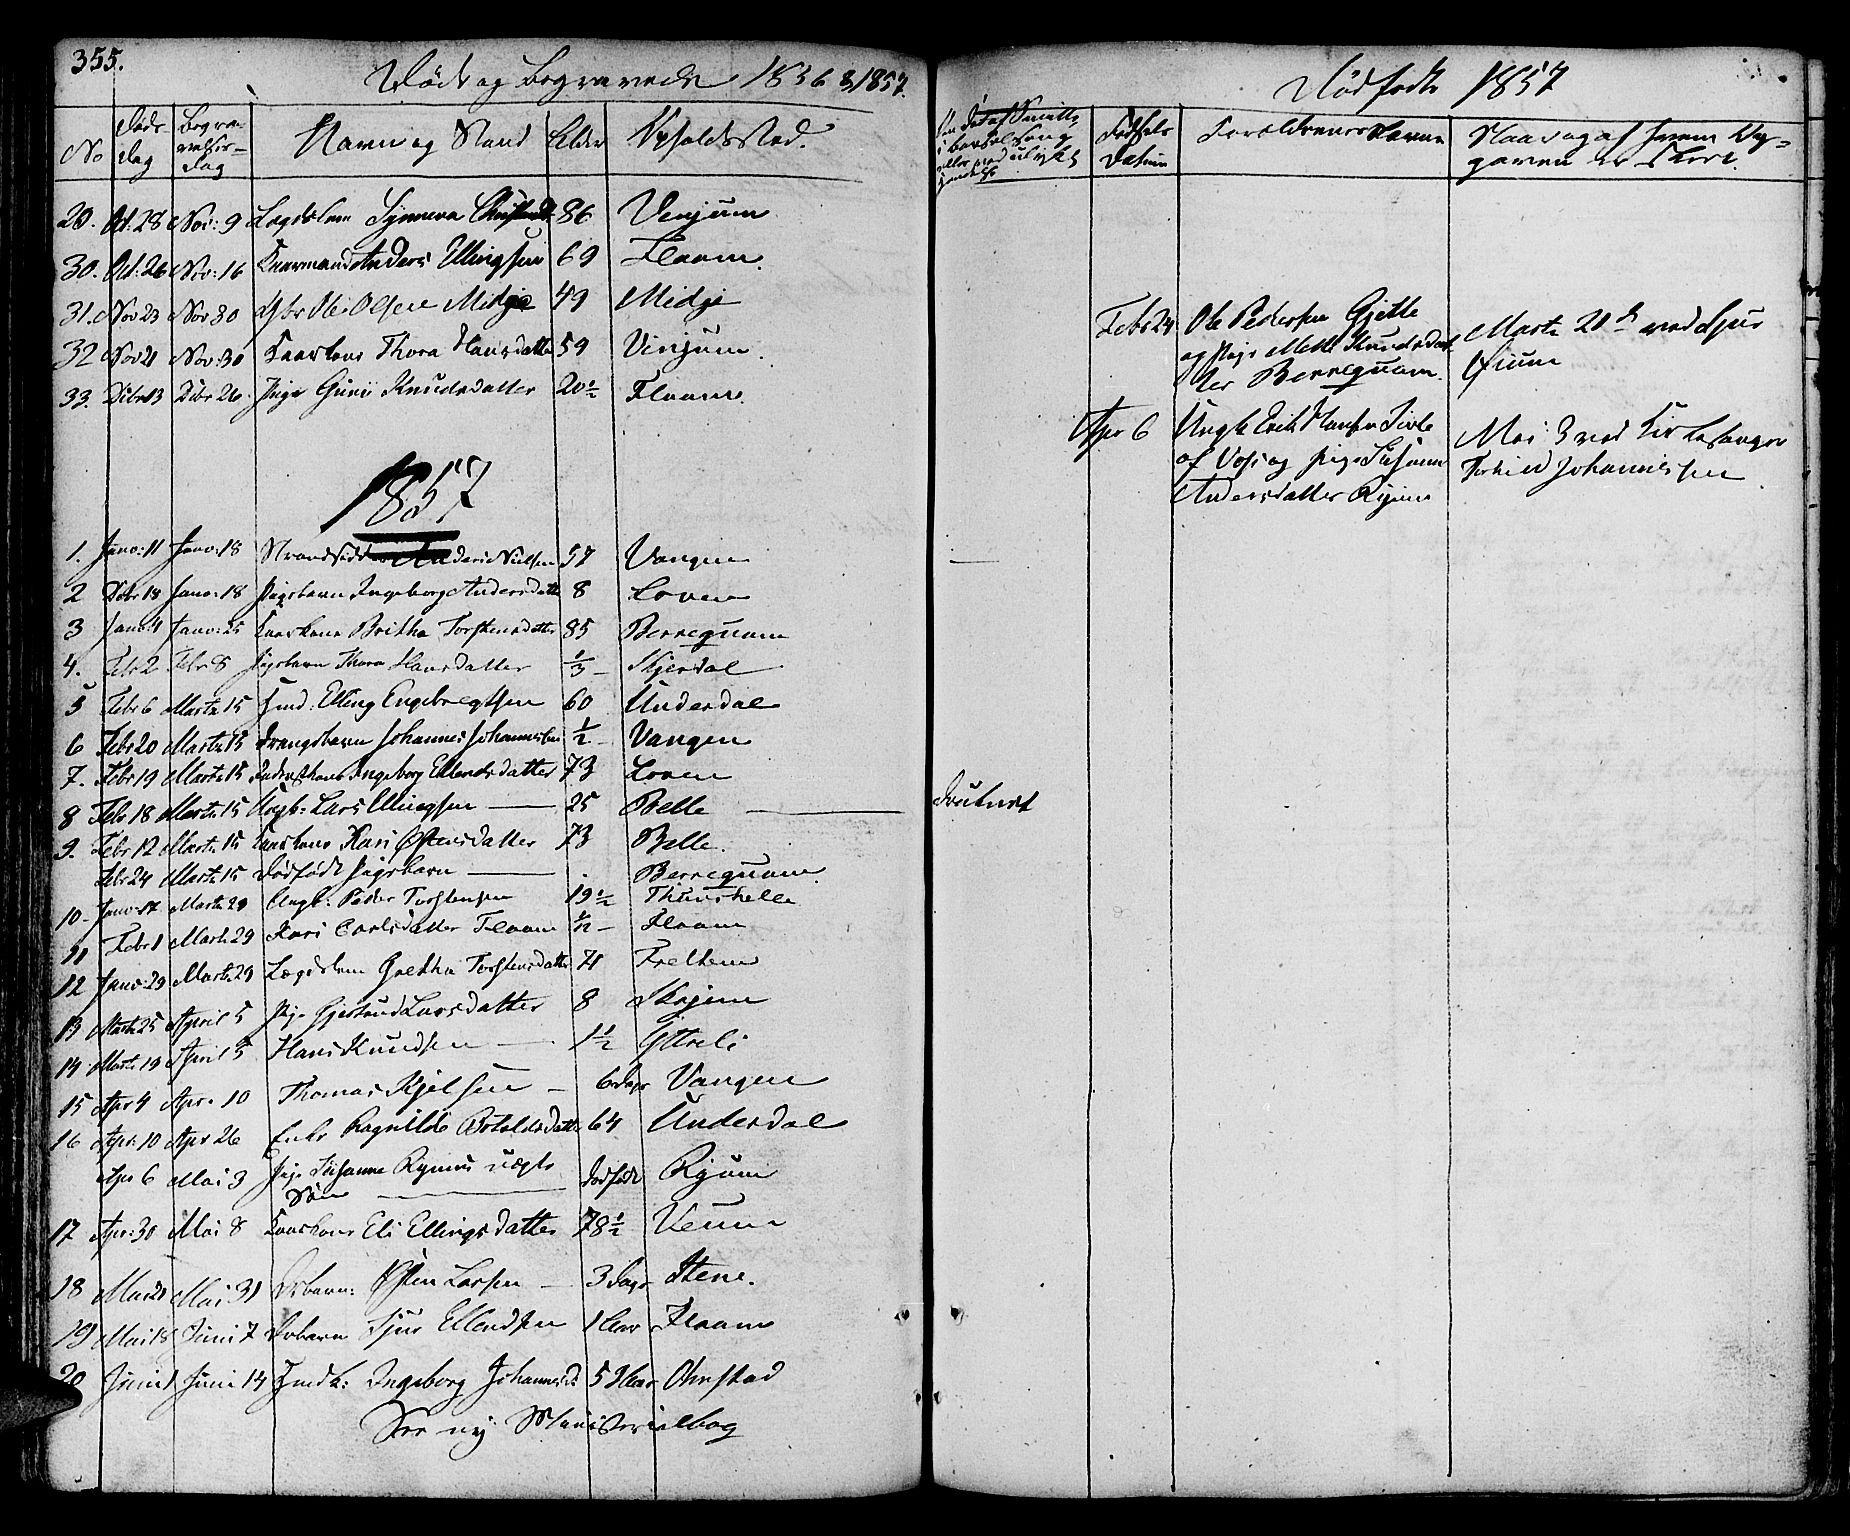 355.
Döde og Begravede 1856 & 1857.
No
Döds Dag
Begravelses-Dag
Navn og Stand
Alder
Opholdssted.
29. Oct: 28 Nov: 9 Lægdslem Synneva 86 Vinjum
30. Oct: 26 Nov: 16 Kaarmand Anders Ellingsen 69 Flaam.
31. Nov 23 Nov 30 Gbr Ole Olsen Midje 49 Midje
32 Nov 21 Nov: 30 Kaarkone Thora Hansdatter 59 Vinjum.
33. Dcbr 13 Dcbr 26. Pige Guri Knudsdatter 20½ Flaam.
1857
1. Janv: 11 Janv: 18 Strandsidder Anders Nielsen 57 Vangen
2 Dcbr 18 Janv: 18 Pigebarn Ingeborg Andersdatter 8 Loven
3 Janv: 4 Janv: 25 Kaarkone Britha Torstensdatter 85 Berrequam
4. Febr 2 Febr 8 Pigebarn Thora Hansdatter ⅓ Skjerdal
5 Febr 6 Marts 15 Hmd: Elling Engebregtsen 60 Underdal
6 Febr 20 Marts 15 Drengebarn Johannes Johannessen ½ Vangen
7. Febr 19 Marts 15 Ingeborg Ellendsdatter 73 Loven
8 Febr 18 Marts 15 Ungk: Lars Ellingsen — 25 Belle —
9. Febr 12 Marts 15 Kaarkone Kari Østensdatter 73 Belle.
Febr 24 Marts 15 Dödfödt Pigebarn — Berrequam.
10 Janv: 17 Marts 29 Ungk: Peder Torstensen 19½
11 Febr 1 Marts 29 Kari Carlsdatter Flaam ½ Flaam
12 Janv: 29 Marts 29 Lægdslem Grethe Torstensdatter 71 Frettem
13 Marts 25 April 5 Pige Gjertrud Larsdatter 8 Skajem
14 Marts 19 April 5 Hans Knudsen — 1½ Ytreli
15 Apr 4 Apr. 10 Thomas Kjelsen — 6 Dage Vangen
16 Apr: 10 Apr 26 Enke Ragnilde Botolvsdatter 64 Underdal
Apr 6 Mai 3 Pige Susanne Ryums uægte
Sön — dödfödt Ryum
17 Apr: 30 Mai 8 Kaarkone Eli Ellingsdatter 78½ Veum
18 Mai 21 Mai 31 Dbarn: Østen Larsen — 3 Dage Stene.
19 Mai 18 Juni 7 Dbarn Sjur Ellendsen 1 Aar Flaam
20 Juni 1 Juni 14 Hmdb: Ingeborg Johannesd: 59 Aar Onstad
See ny Ministerialbog
Dödfödte 1857
i Barselseng
eller ved ulykkelig
Födsels
Datum
Forældrenes Navne
Naar og af hvem Opgaven er skeet.
Febr 24 Ole Pedersen Gjetle
og Pige Mette Knudsdatter
Berrequam.
Marts 28 d ved Sjur
Apr 6 Ungk Erik Hansen Tvete
af Vos og Pige Susanne
Andersdatter Ryum
Mai 3 ved Kirkesanger
Johannessen
druknet